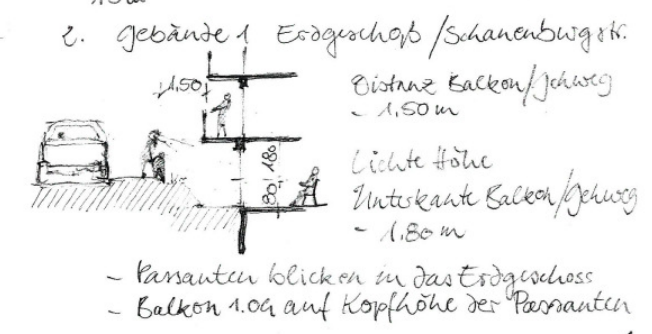 2. Gebäude 1 Erdgeschoß / Schauenburgstr.
1,50
Distanz Balkon/Gehweg
- 1,50 m
180
80
Lichte Höhe
Unterkante Balkon/Gehweg
- 1.80 m
- Passanten blicken in das Erdgeschoss
- Balkon 1.OG auf Kopfhöhe der Passanten